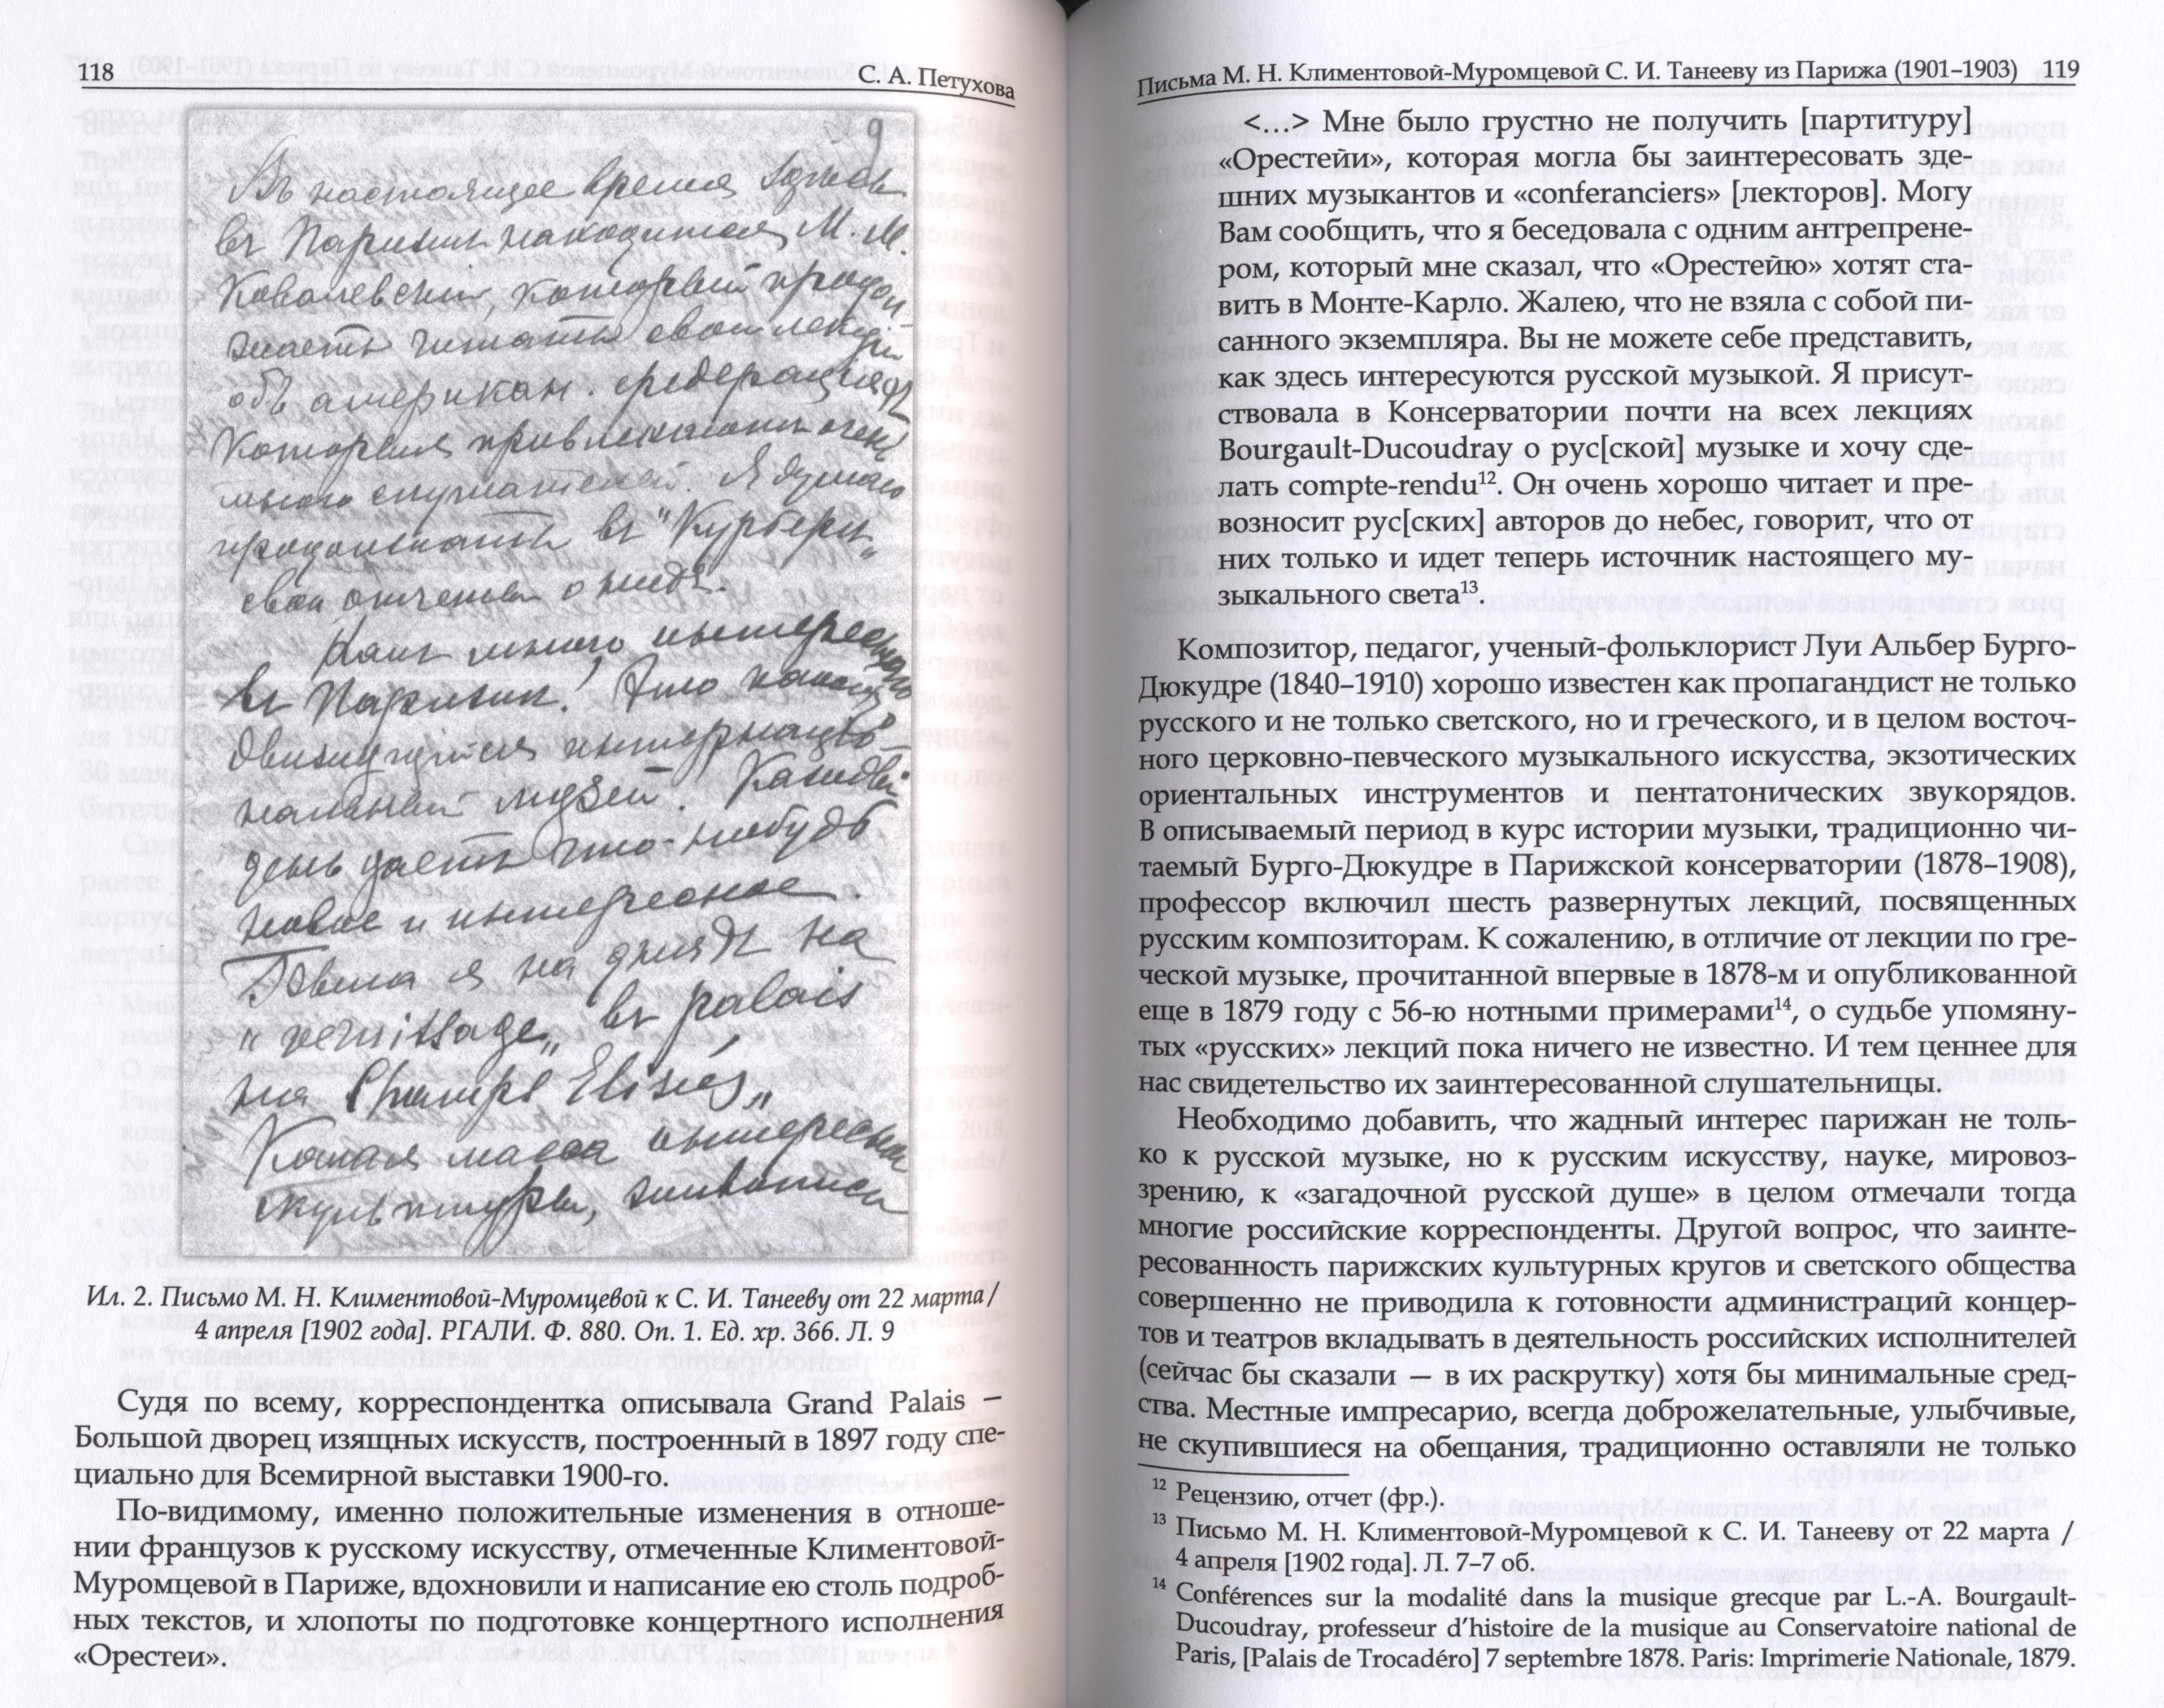 118
С. А. Петухова
9
Въ настоящее время здесь
въ Париже находится М. М.
Ковалевский, который продол-
жаетъ читать свои лекции
объ американ. федерациях
которыя привлекают очень
много слушателей. Я думаю
продолжать въ "Курьере"
свои отчеты о нихъ.
Какъ много интереснаго
въ Париже! Это какой то
движущийся интернацио-
нальный музей. Каждый
день даетъ что-нибудь
новое и интересное
Была я на дняхъ на
"vernissage" въ palais
на Champs Elisées"
Какая масса интересной
скульптуры, живописи
Ил. 2. Письмо М. Н. Климентовой-Муромцевой к С. И. Танееву от 22 марта /
4 апреля [1902 года]. РГАЛИ. Ф. 880. Оп. 1. Ед. хр. 366. Л. 9
Судя по всему, корреспондентка описывала Grand Palais —
Большой дворец изящных искусств, построенный в 1897 году спе-
циально для Всемирной выставки 1900-го.
По-видимому, именно положительные изменения в отноше-
нии французов к русскому искусству, отмеченные Климентовой-
Муромцевой в Париже, вдохновили и написание ею столь подроб-
ных текстов, и хлопоты по подготовке концертного исполнения
«Орестеи».
Письма М. Н. Климентовой-Муромцевой С. И. Танееву из Парижа (1901–1903) 119
<...> Мне было грустно не получить [партитуру]
«Орестейи», которая могла бы заинтересовать зде-
шних музыкантов и «conferanciers» [лекторов]. Могу
Вам сообщить, что я беседовала с одним антрепрене-
ром, который мне сказал, что «Орестейю» хотят ста-
вить в Монте-Карло. Жалею, что не взяла с собой пи-
санного экземпляра. Вы не можете себе представить,
как здесь интересуются русской музыкой. Я присут-
ствовала в Консерватории почти на всех лекциях
Bourgault-Ducoudray о рус[ской] музыке и хочу сде-
лать compte-rendu¹². Он очень хорошо читает и пре-
возносит рус[ских] авторов до небес, говорит, что от
них только и идет теперь источник настоящего му-
зыкального света¹³.
Композитор, педагог, ученый-фольклорист Луи Альбер Бурго-
Дюкудре (1840–1910) хорошо известен как пропагандист не только
русского и не только светского, но и греческого, и в целом восточ-
ного церковно-певческого музыкального искусства, экзотических
ориентальных инструментов и пентатонических звукорядов.
В описываемый период в курс истории музыки, традиционно чи-
таемый Бурго-Дюкудре в Парижской консерватории (1878–1908),
профессор включил шесть развернутых лекций, посвященных
русским композиторам. К сожалению, в отличие от лекции по гре-
ческой музыке, прочитанной впервые в 1878-м и опубликованной
еще в 1879 году с 56-ю нотными примерами¹⁴, о судьбе упомяну-
тых «русских» лекций пока ничего не известно. И тем ценнее для
нас свидетельство их заинтересованной слушательницы.
Необходимо добавить, что жадный интерес парижан не толь-
ко к русской музыке, но к русским искусству, науке, мировоз-
зрению, к «загадочной русской душе» в целом отмечали тогда
многие российские корреспонденты. Другой вопрос, что заинте-
ресованность парижских культурных кругов и светского общества
совершенно не приводила к готовности администраций концер-
тов и театров вкладывать в деятельность российских исполнителей
(сейчас бы сказали — в их раскрутку) хотя бы минимальные сред-
ства. Местные импресарио, всегда доброжелательные, улыбчивые,
не скупившиеся на обещания, традиционно оставляли не только
¹² Рецензию, отчет (фр.).
¹³ Письмо М. Н. Климентовой-Муромцевой к С. И. Танееву от 22 марта /
4 апреля [1902 года]. Л. 7–7 об.
¹⁴ Conférences sur la modalité dans la musique grecque par L.-A. Bourgault-
Ducoudray, professeur d'histoire de la musique au Conservatoire national de
Paris, [Palais de Trocadéro] 7 septembre 1878. Paris: Imprimerie Nationale, 1879.